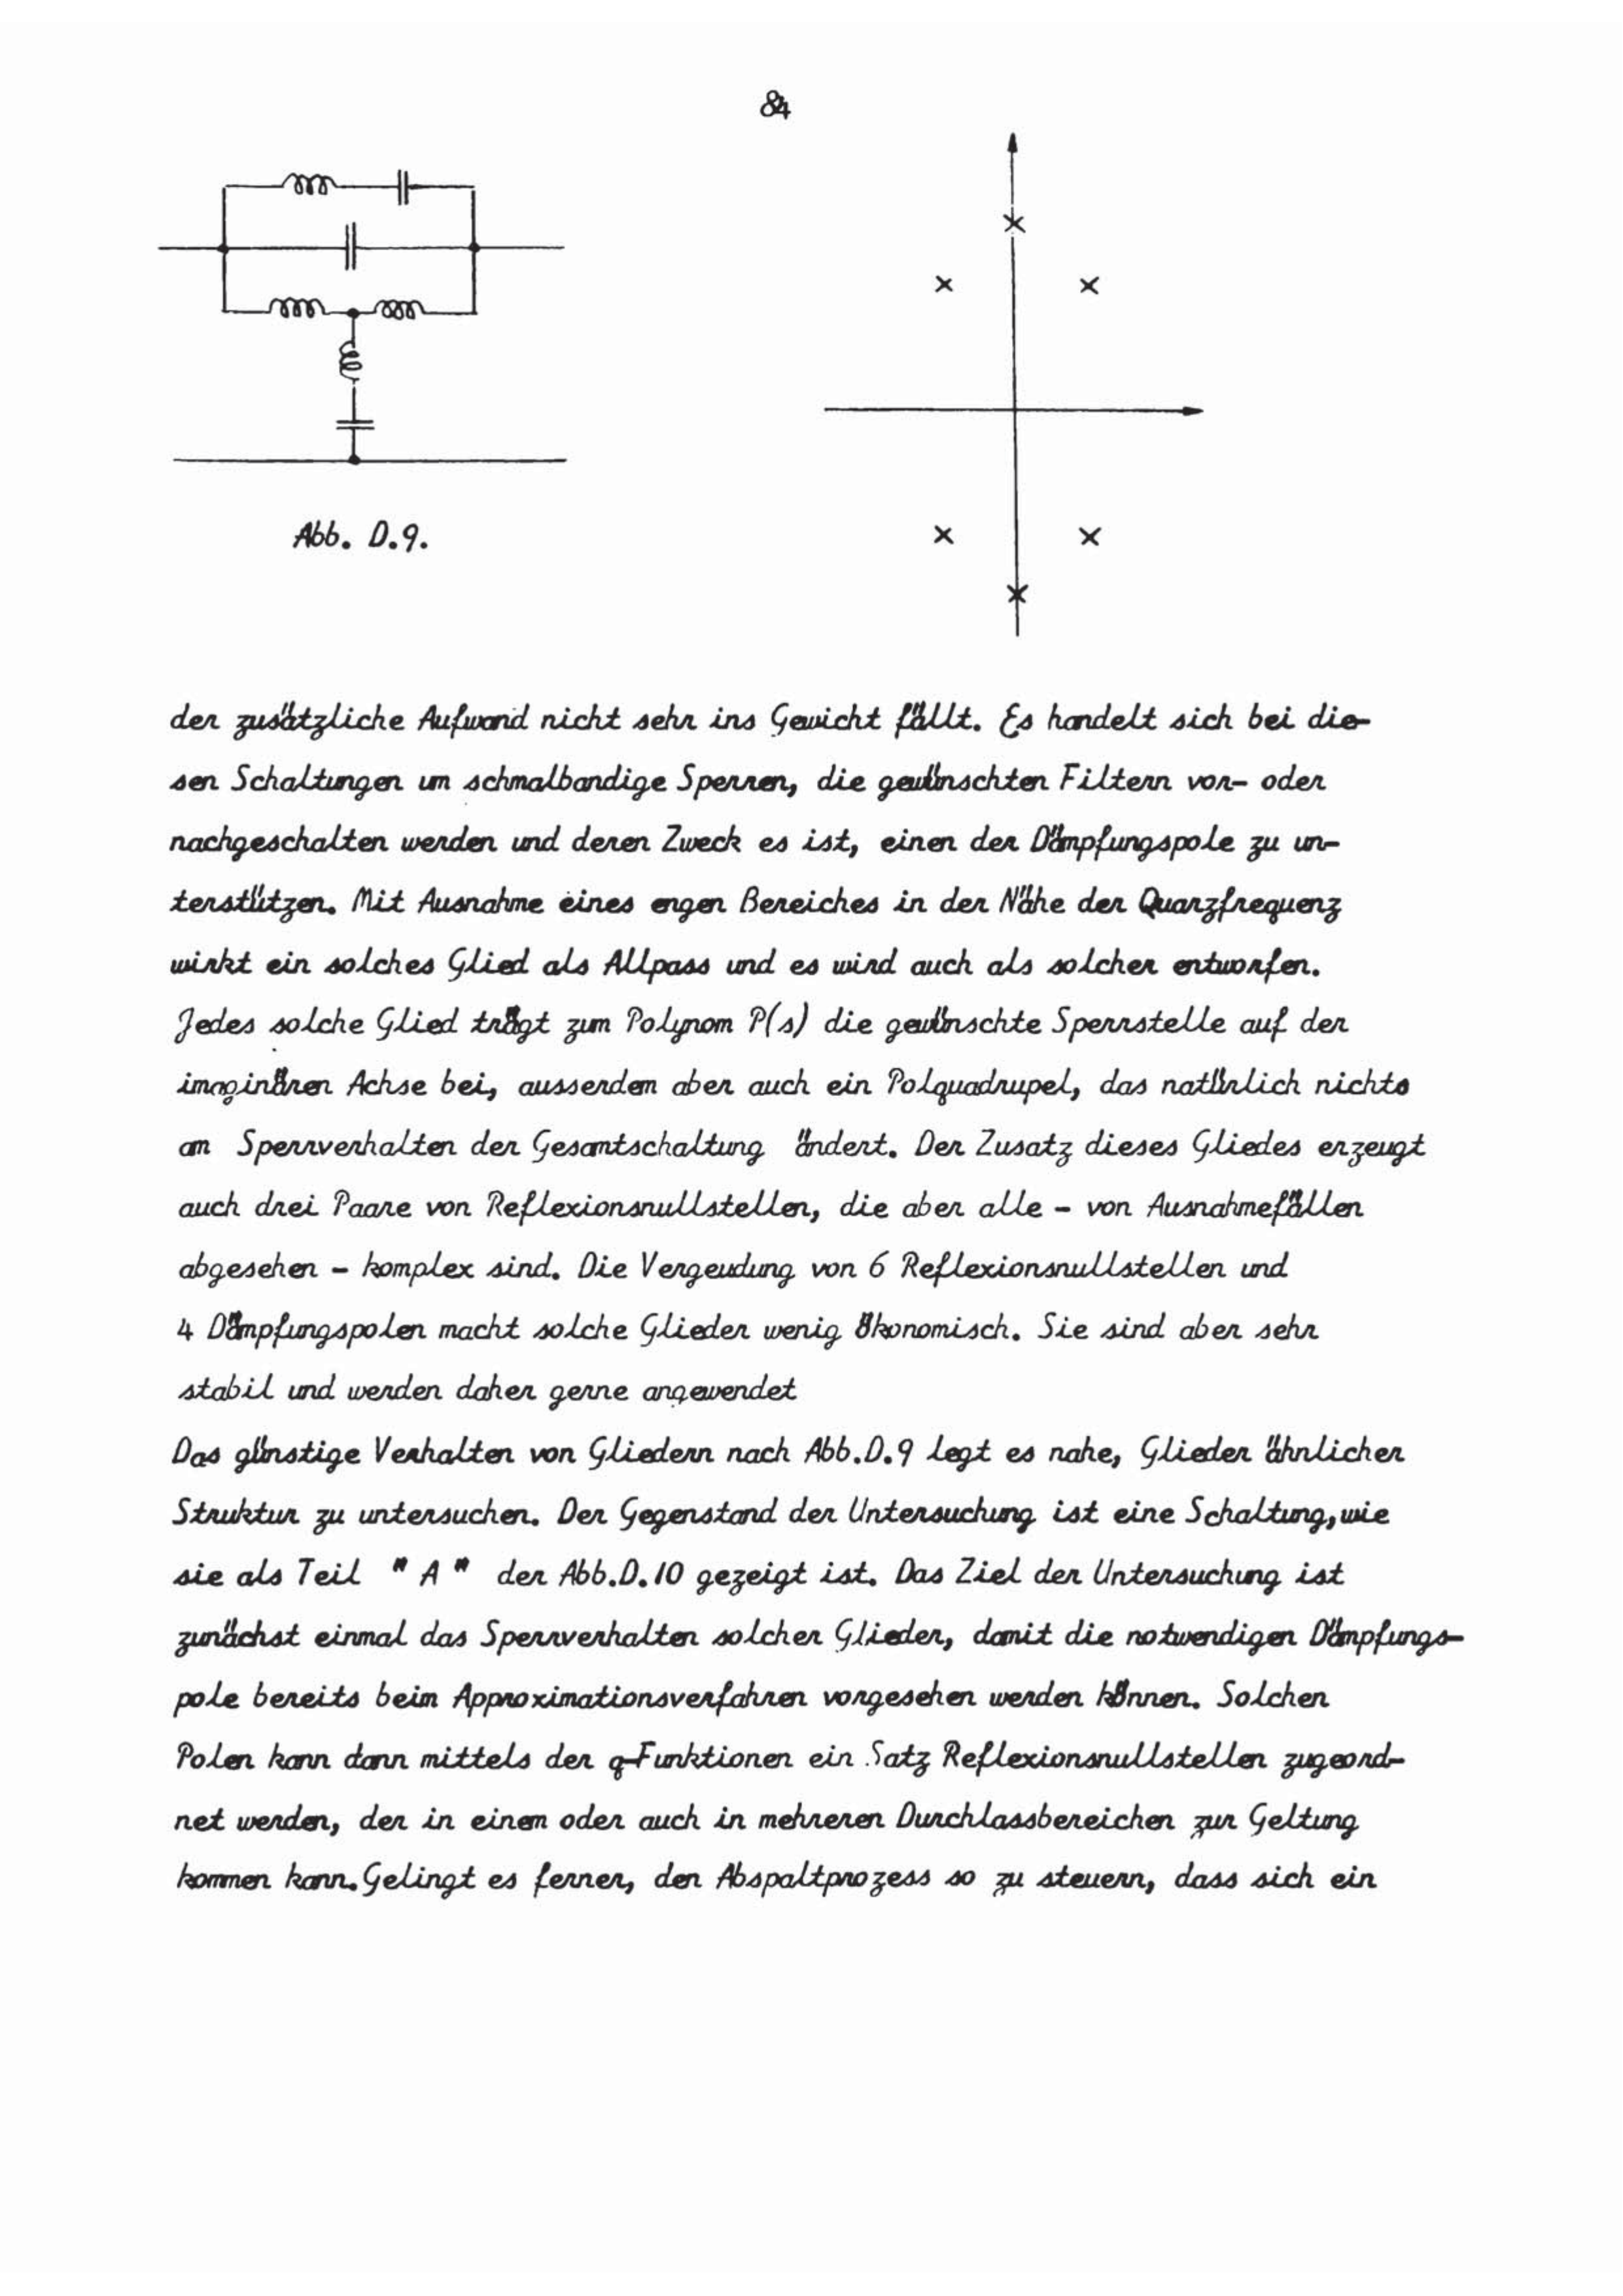 84
Abb. D.9.
der zusätzliche Aufwand nicht sehr ins Gewicht fällt. Es handelt sich bei die-
sen Schaltungen um schmalbandige Sperren, die gewünschten Filtern vor- oder
nachgeschalten werden und deren Zweck es ist, einen der Dämpfungspole zu un-
terstützen. Mit Ausnahme eines engen Bereiches in der Nähe der Quarzfrequenz
wirkt ein solches Glied als Allpass und es wird auch als solcher entworfen.
Jedes solche Glied trägt zum Polynom P(s) die gewünschte Sperrstelle auf der
imaginären Achse bei, ausserdem aber auch ein Polquadrupel, das natürlich nichts
am Sperrverhalten der Gesamtschaltung ändert. Der Zusatz dieses Gliedes erzeugt
auch drei Paare von Reflexionsnullstellen, die aber alle - von Ausnahmefällen
abgesehen - komplex sind. Die Vergeudung von 6 Reflexionsnullstellen und
4 Dämpfungspolen macht solche Glieder wenig ökonomisch. Sie sind aber sehr
stabil und werden daher gerne angewendet
Das günstige Verhalten von Gliedern nach Abb.D.9 legt es nahe, Glieder ähnlicher
Struktur zu untersuchen. Der Gegenstand der Untersuchung ist eine Schaltung, wie
sie als Teil " A " der Abb.D.10 gezeigt ist. Das Ziel der Untersuchung ist
zunächst einmal das Sperrverhalten solcher Glieder, damit die notwendigen Dämpfungs-
pole bereits beim Approximationsverfahren vorgesehen werden können. Solchen
Polen kann dann mittels der q-Funktionen ein Satz Reflexionsnullstellen zugeord-
net werden, der in einem oder auch in mehreren Durchlassbereichen zur Geltung
kommen kann. Gelingt es ferner, den Abspaltprozess so zu steuern, dass sich ein